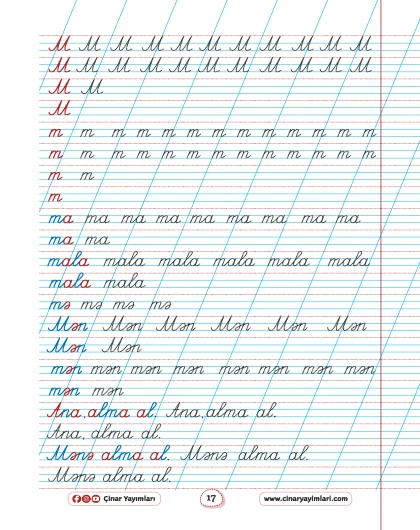 M M M M M M M M M M M
M M M M M M M M M M M
M M
M
m m m m m m m m m m m
m m m m m m m m m m m
m m
m
ma ma ma ma ma ma ma ma ma
ma ma
mala mala mala mala mala mala
mala mala
mə mə mə mə
Mən Mən Mən Mən Mən Mən
Mən Mən
mən mən mən mən mən mən mən mən
mən mən
Ana, alma al. Ana, alma al.
Ana, alma al.
Mənə alma al. Mənə alma al.
Mənə alma al.
Çinar Yayımları 17 www.cinaryayimlari.com